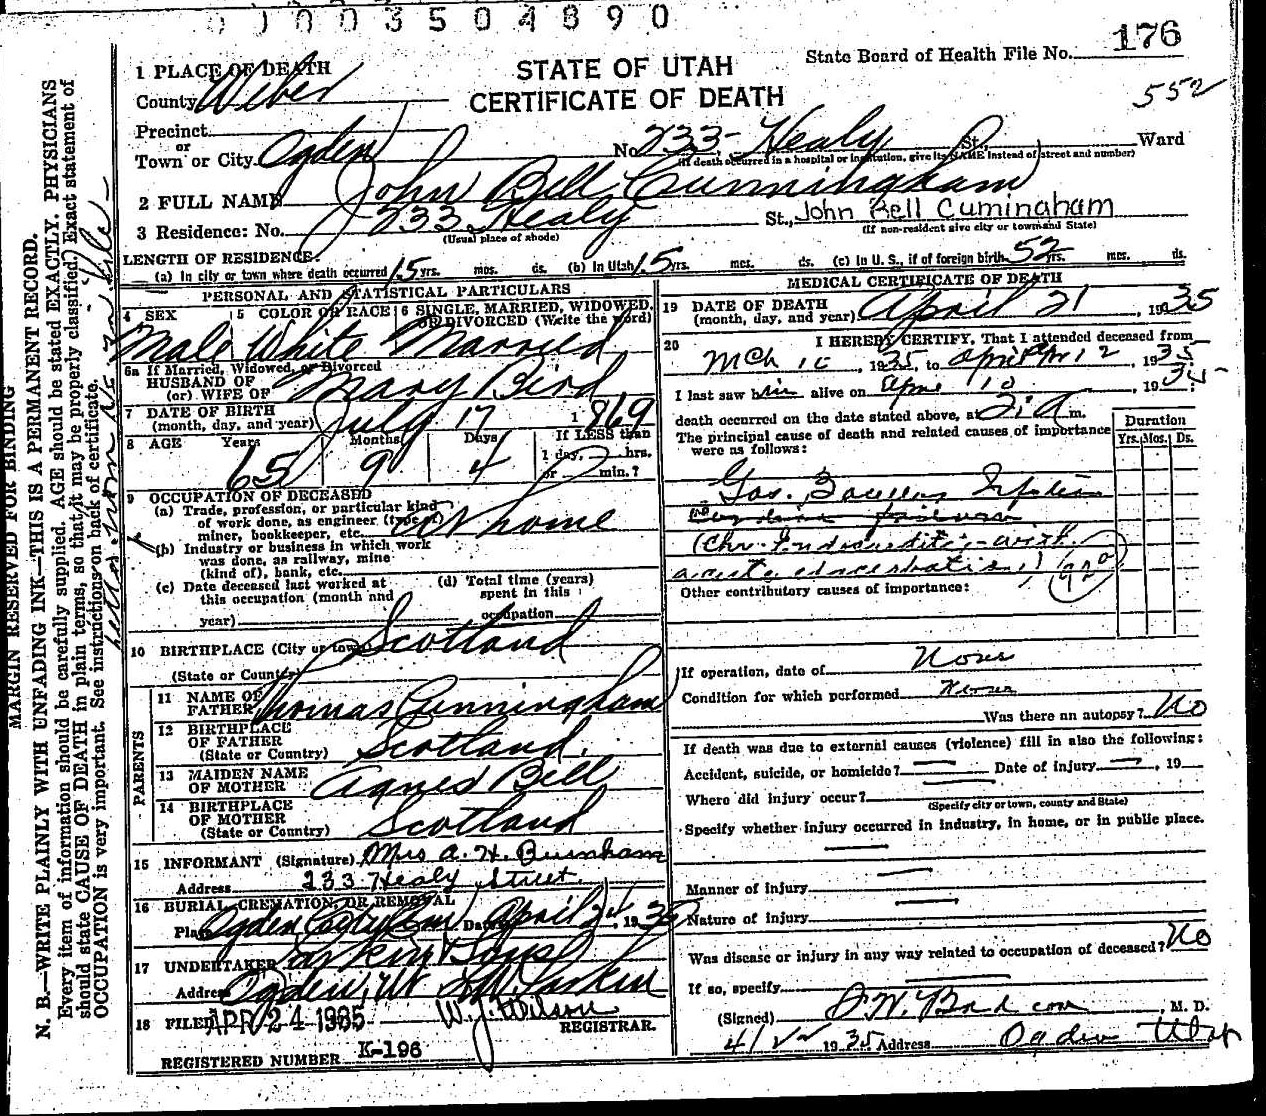 0003504890
State Board of Health File No. 176
552
STATE OF UTAH
CERTIFICATE OF DEATH
1 PLACE OF DEATH
County Weber
Precinct
or
Town or City Ogden No. 233 Healy St., Ward
(If death occurred in a hospital or institution, give its NAME instead of street and number)
2 FULL NAME John Bell Cunningham
3 Residence: No. 233 Healy St., John Bell Cuminaham
(Usual place of abode) (If non-resident give city or town and State)
LENGTH OF RESIDENCE:
(a) In city or town where death occurred 15 yrs. mos. ds. (b) In Utah 15 yrs. mos. ds. (c) In U. S., if of foreign birth 52 yrs. mos. ds.
PERSONAL AND STATISTICAL PARTICULARS
4 SEX 5 COLOR OR RACE 6 SINGLE, MARRIED, WIDOWED, OR DIVORCED (Write the word)
Male White Married
6a If Married, Widowed, or Divorced
HUSBAND OF
(or) WIFE OF Mary Bird
7 DATE OF BIRTH
(month, day, and year) July 17 1869
8 AGE Years Months Days If LESS than
1 day, hrs.
65 9 4 or min.?
9 OCCUPATION OF DECEASED
(a) Trade, profession, or particular kind
of work done, as engineer (type of)
miner, bookkeeper, etc. At home
(b) Industry or business in which work
was done, as railway, mine
(kind of), bank, etc.
(c) Date deceased last worked at
this occupation (month and
year)
(d) Total time (years)
spent in this
occupation
10 BIRTHPLACE (City or town) Scotland
(State or Country)
PARENTS
11 NAME OF
FATHER Thomas Cunningham
12 BIRTHPLACE
OF FATHER Scotland
(State or Country)
13 MAIDEN NAME
OF MOTHER Agnes Bell
14 BIRTHPLACE
OF MOTHER Scotland
(State or Country)
15 INFORMANT (Signature) Mrs A. H. Burnham
Address 233 Healy Street
16 BURIAL, CREMATION, OR REMOVAL
Place Ogden City Cem Date April 24, 1935
17 UNDERTAKER Larkin & Sons
Address Ogden, Ut Larkin
18 FILED APR 24 1935 W. J. Wilson
REGISTRAR.
REGISTERED NUMBER K-196
MEDICAL CERTIFICATE OF DEATH
19 DATE OF DEATH
(month, day, and year) April 21, 1935
20 I HEREBY CERTIFY, That I attended deceased from
Mch 1935, to 1935
I last saw him alive on Apr 10 1935;
death occurred on the date stated above, at 2: a m.
The principal cause of death and related causes of importance
were as follows:
Duration
Yrs. Mos. Ds.
Gas. Bacillus
(Chr. Endocarditis with
acute exacerbation)
Other contributory causes of importance:
If operation, date of None
Condition for which performed None
Was there an autopsy? No
If death was due to external causes (violence) fill in also the following:
Accident, suicide, or homicide? — Date of injury —, 19
Where did injury occur?
(Specify city or town, county and State)
Specify whether injury occurred in industry, in home, or in public place.
Manner of injury
Nature of injury
Was disease or injury in any way related to occupation of deceased? No
If so, specify
(Signed) M. D.
1935 Address Ogden Utah
MARGIN RESERVED FOR BINDING
N. B.—WRITE PLAINLY WITH UNFADING INK—THIS IS A PERMANENT RECORD.
Every item of information should be carefully supplied. AGE should be stated EXACTLY. PHYSICIANS
should state CAUSE OF DEATH in plain terms, so that it may be properly classified. Exact statement of
OCCUPATION is very important. See instructions on back of certificate.